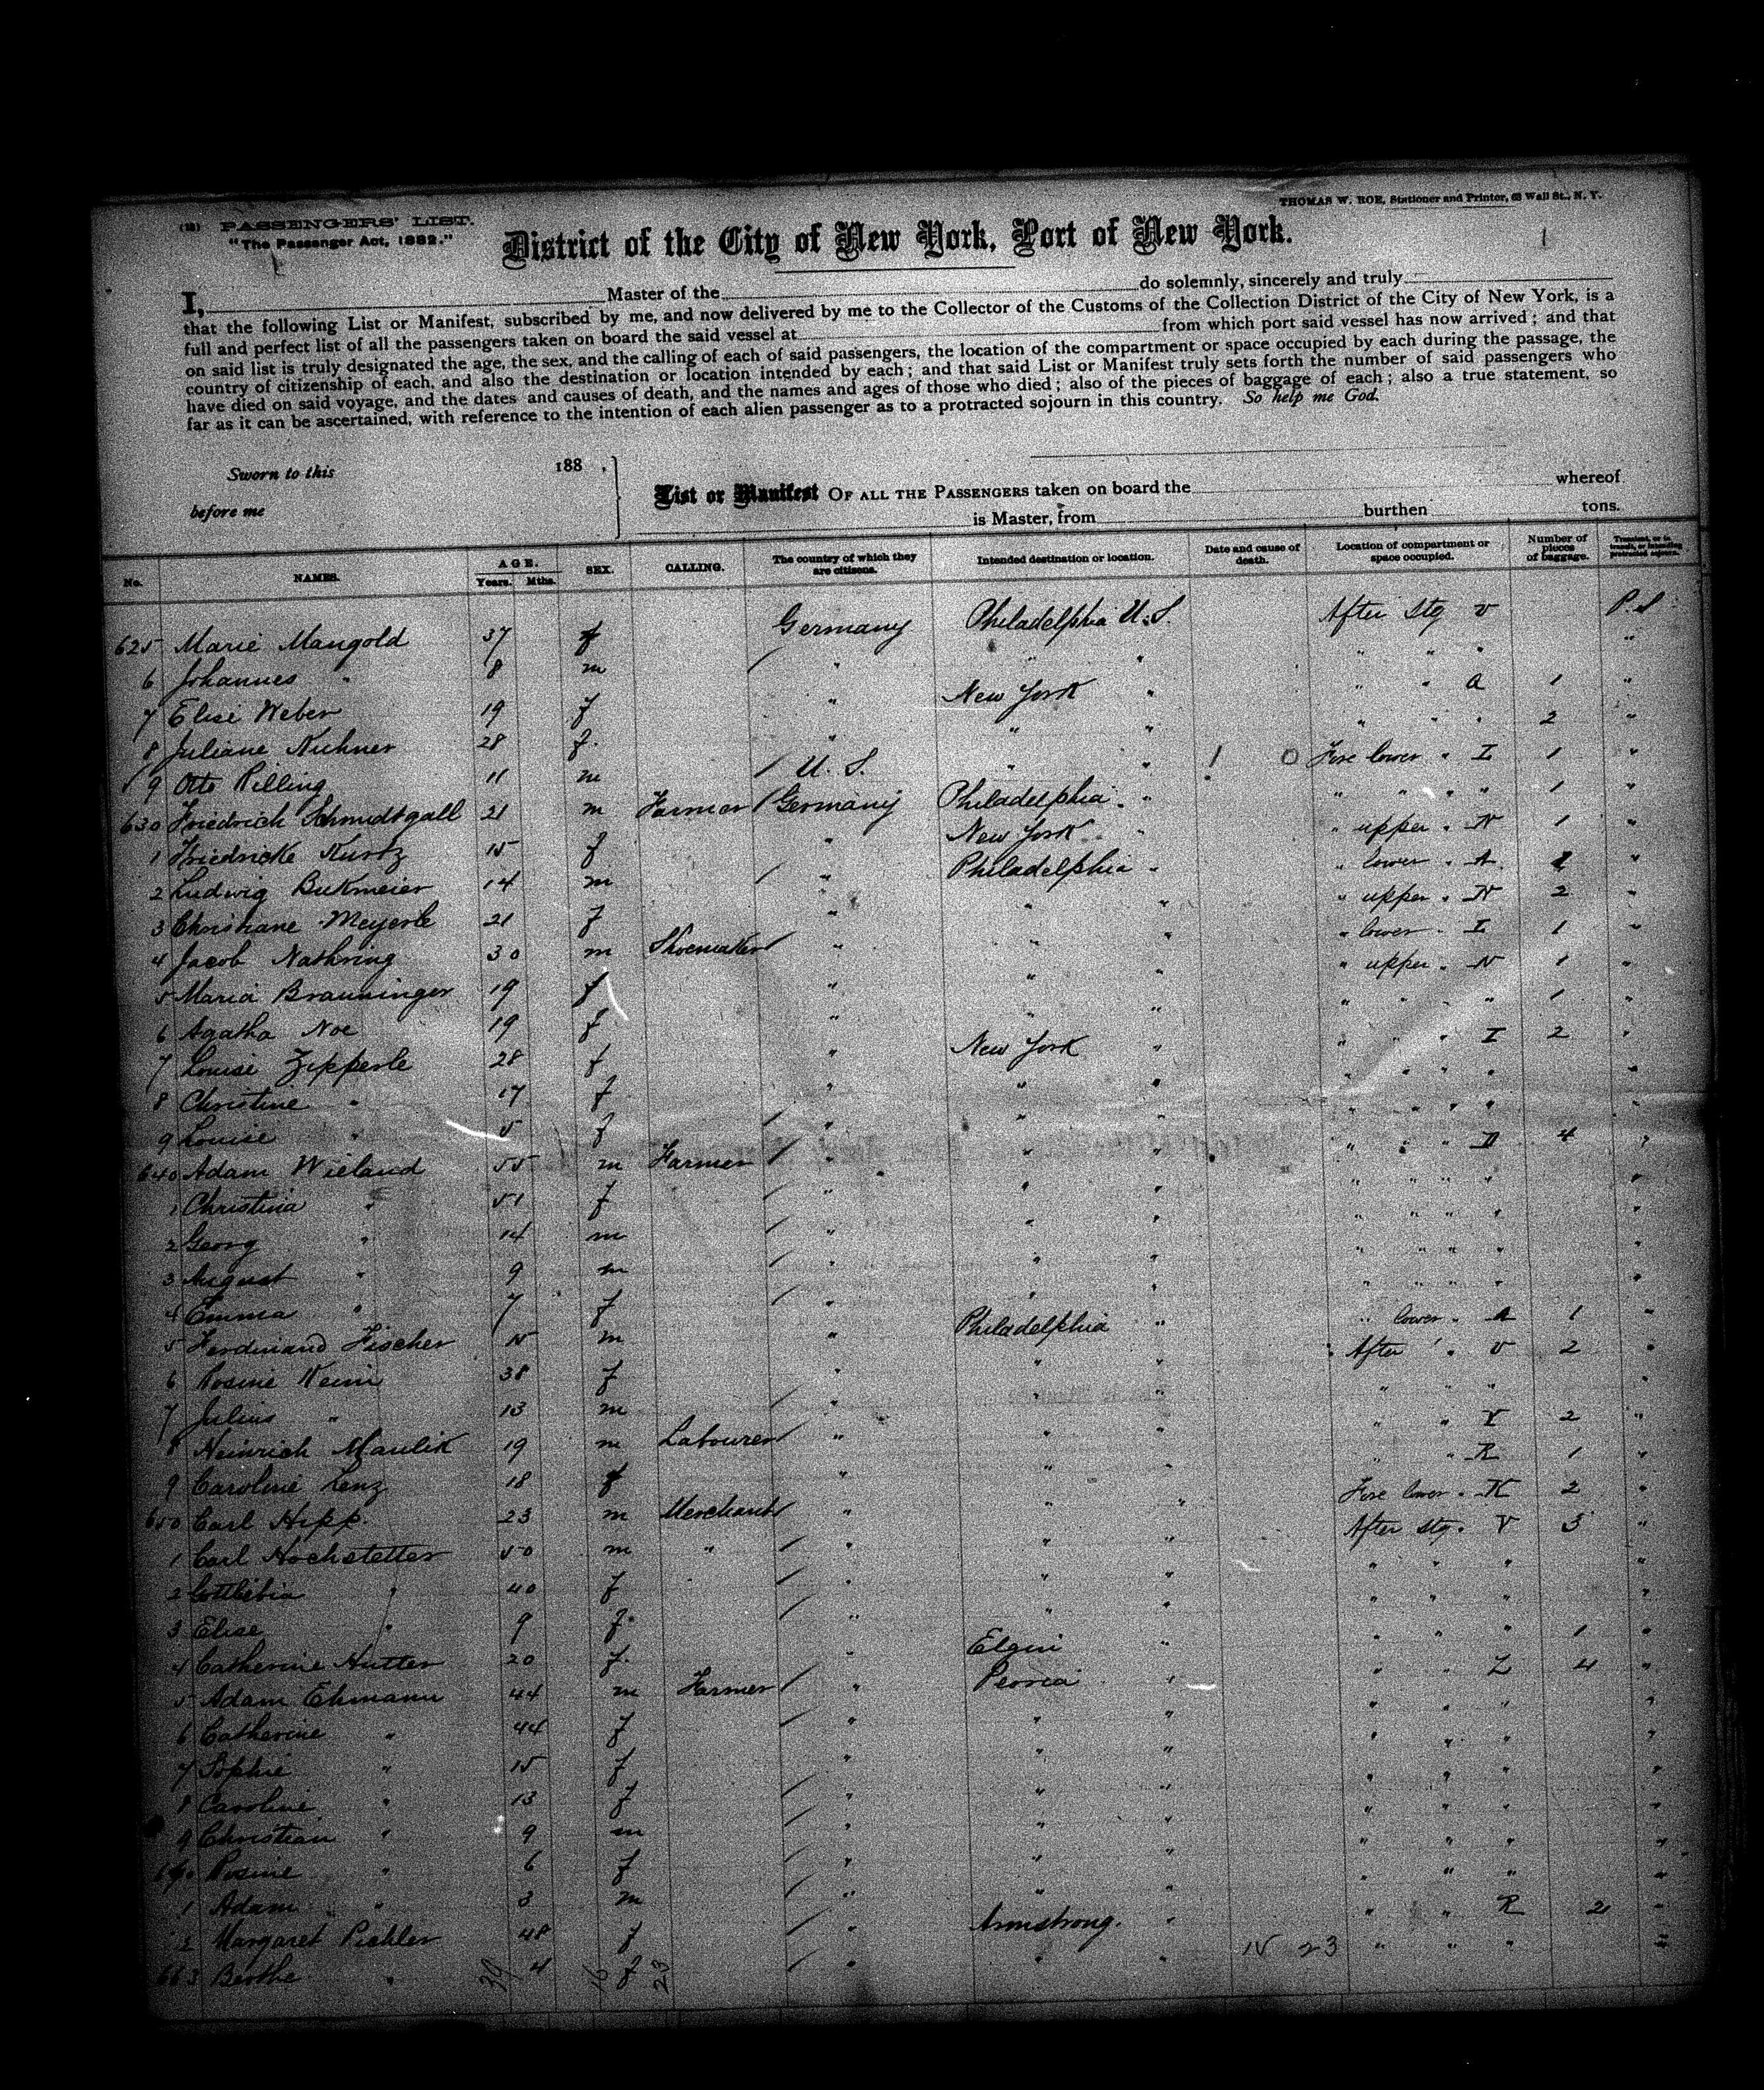 (2) PASSENGERS' LIST.
THOMAS W. ROE, Stationer and Printer, 63 Wall St., N. Y.
"The Passenger Act, 1882."
District of the City of New York, Port of New York.
I, Master of the do solemnly, sincerely and truly
that the following List or Manifest, subscribed by me, and now delivered by me to the Collector of the Customs of the Collection District of the City of New York, is a
full and perfect list of all the passengers taken on board the said vessel at from which port said vessel has now arrived; and that
on said list is truly designated the age, the sex, and the calling of each of said passengers, the location of the compartment or space occupied by each during the passage, the
country of citizenship of each, and also the destination or location intended by each; and that said List or Manifest truly sets forth the number of said passengers who
have died on said voyage, and the dates and causes of death, and the names and ages of those who died; also of the pieces of baggage of each; also a true statement, so
far as it can be ascertained, with reference to the intention of each alien passenger as to a protracted sojourn in this country. So help me God.
Sworn to this 188 ,
before me
List or Manifest OF ALL THE PASSENGERS taken on board the whereof
is Master, from burthen tons.
No. NAMES. AGE. Years. Mths. SEX. CALLING. The country of which they are citizens. Intended destination or location. Date and cause of death. Location of compartment or space occupied. Number of pieces of baggage. Transient, or in transit, or intending protracted sojourn.
625 Marie Mangold 37 f Germany Philadelphia U.S. After Stg V P.S
6 Johannes " 8 m / " " " " " " "
7 Elise Weber 19 f " New York " " " a 1 "
8 Juliane Kuhner 28 f. " " " " " " 2 "
9 Otto Rilling 11 m / U. S. " " Fore lower " I 1 "
630 Friedrich Schmidtgall 21 m Farmer / Germany Philadelphia " " " " " 1 "
1 Friedricke Kurtz 15 f " New York " " upper " N 1 "
2 Ludwig Bukmeier 14 m / " Philadelphia " " lower " A 1 "
3 Christiane Meyerle 21 f " " " " upper " N 2 "
4 Jacob Nathring 30 m Shoemaker / " " " " lower " I 1 "
5 Maria Brauninger 19 f " " " " upper " N 1 "
6 Agatha Noe 19 f " " " " " " " 1 "
7 Louise Zipperle 28 f " New York " " " " I 2 "
8 Christine " 17 f " " " " " " " "
9 Louise " 5 f / " " " " " " " "
640 Adam Wieland 55 m Farmer / " " " " " " D 4 "
1 Christina " 51 f / " " " " " " " "
2 Georg " 14 m / " " " " " " " "
3 August " 9 m / " " " " " " " "
4 Emma " 7 f / " " " " " " " "
5 Ferdinand Fischer 15 m " Philadelphia " " lower " A 1 "
6 Rosine Keim 38 f " " " After " V 2 "
7 Julius " 13 m / " " " " " " "
8 Heinrich Maulik 19 m Labourer / " " " " " V 2 "
9 Caroline Lenz 18 f " " " " " R 1 "
650 Carl Hipp. 23 m Merchant / " " " Fore lower " K 2 "
1 Carl Hochstetter 50 m " / " " " After Stg. V 3 "
2 Gottliebia " 40 f / " " " " " " "
3 Elise " 9 f. / " " " " " " "
4 Catherine Hutter 20 f. " Elgin " " " " 1 "
5 Adam Ehmann 44 m Farmer / " Peoria " " " Z 4 "
6 Catherine " 44 f / " " " " " " "
7 Sophie " 15 f " " " " " " "
8 Caroline " 13 f / " " " " " " "
9 Christian " 9 m / " " " " " " "
Rosine " 6 f / " " " " " " "
1 Adam " 3 m / " " " " " "
2 Margaret Pichler 48 f / " Armstrong. " " " R 2 "
663 Berthe " 4 f / " " " " " " "